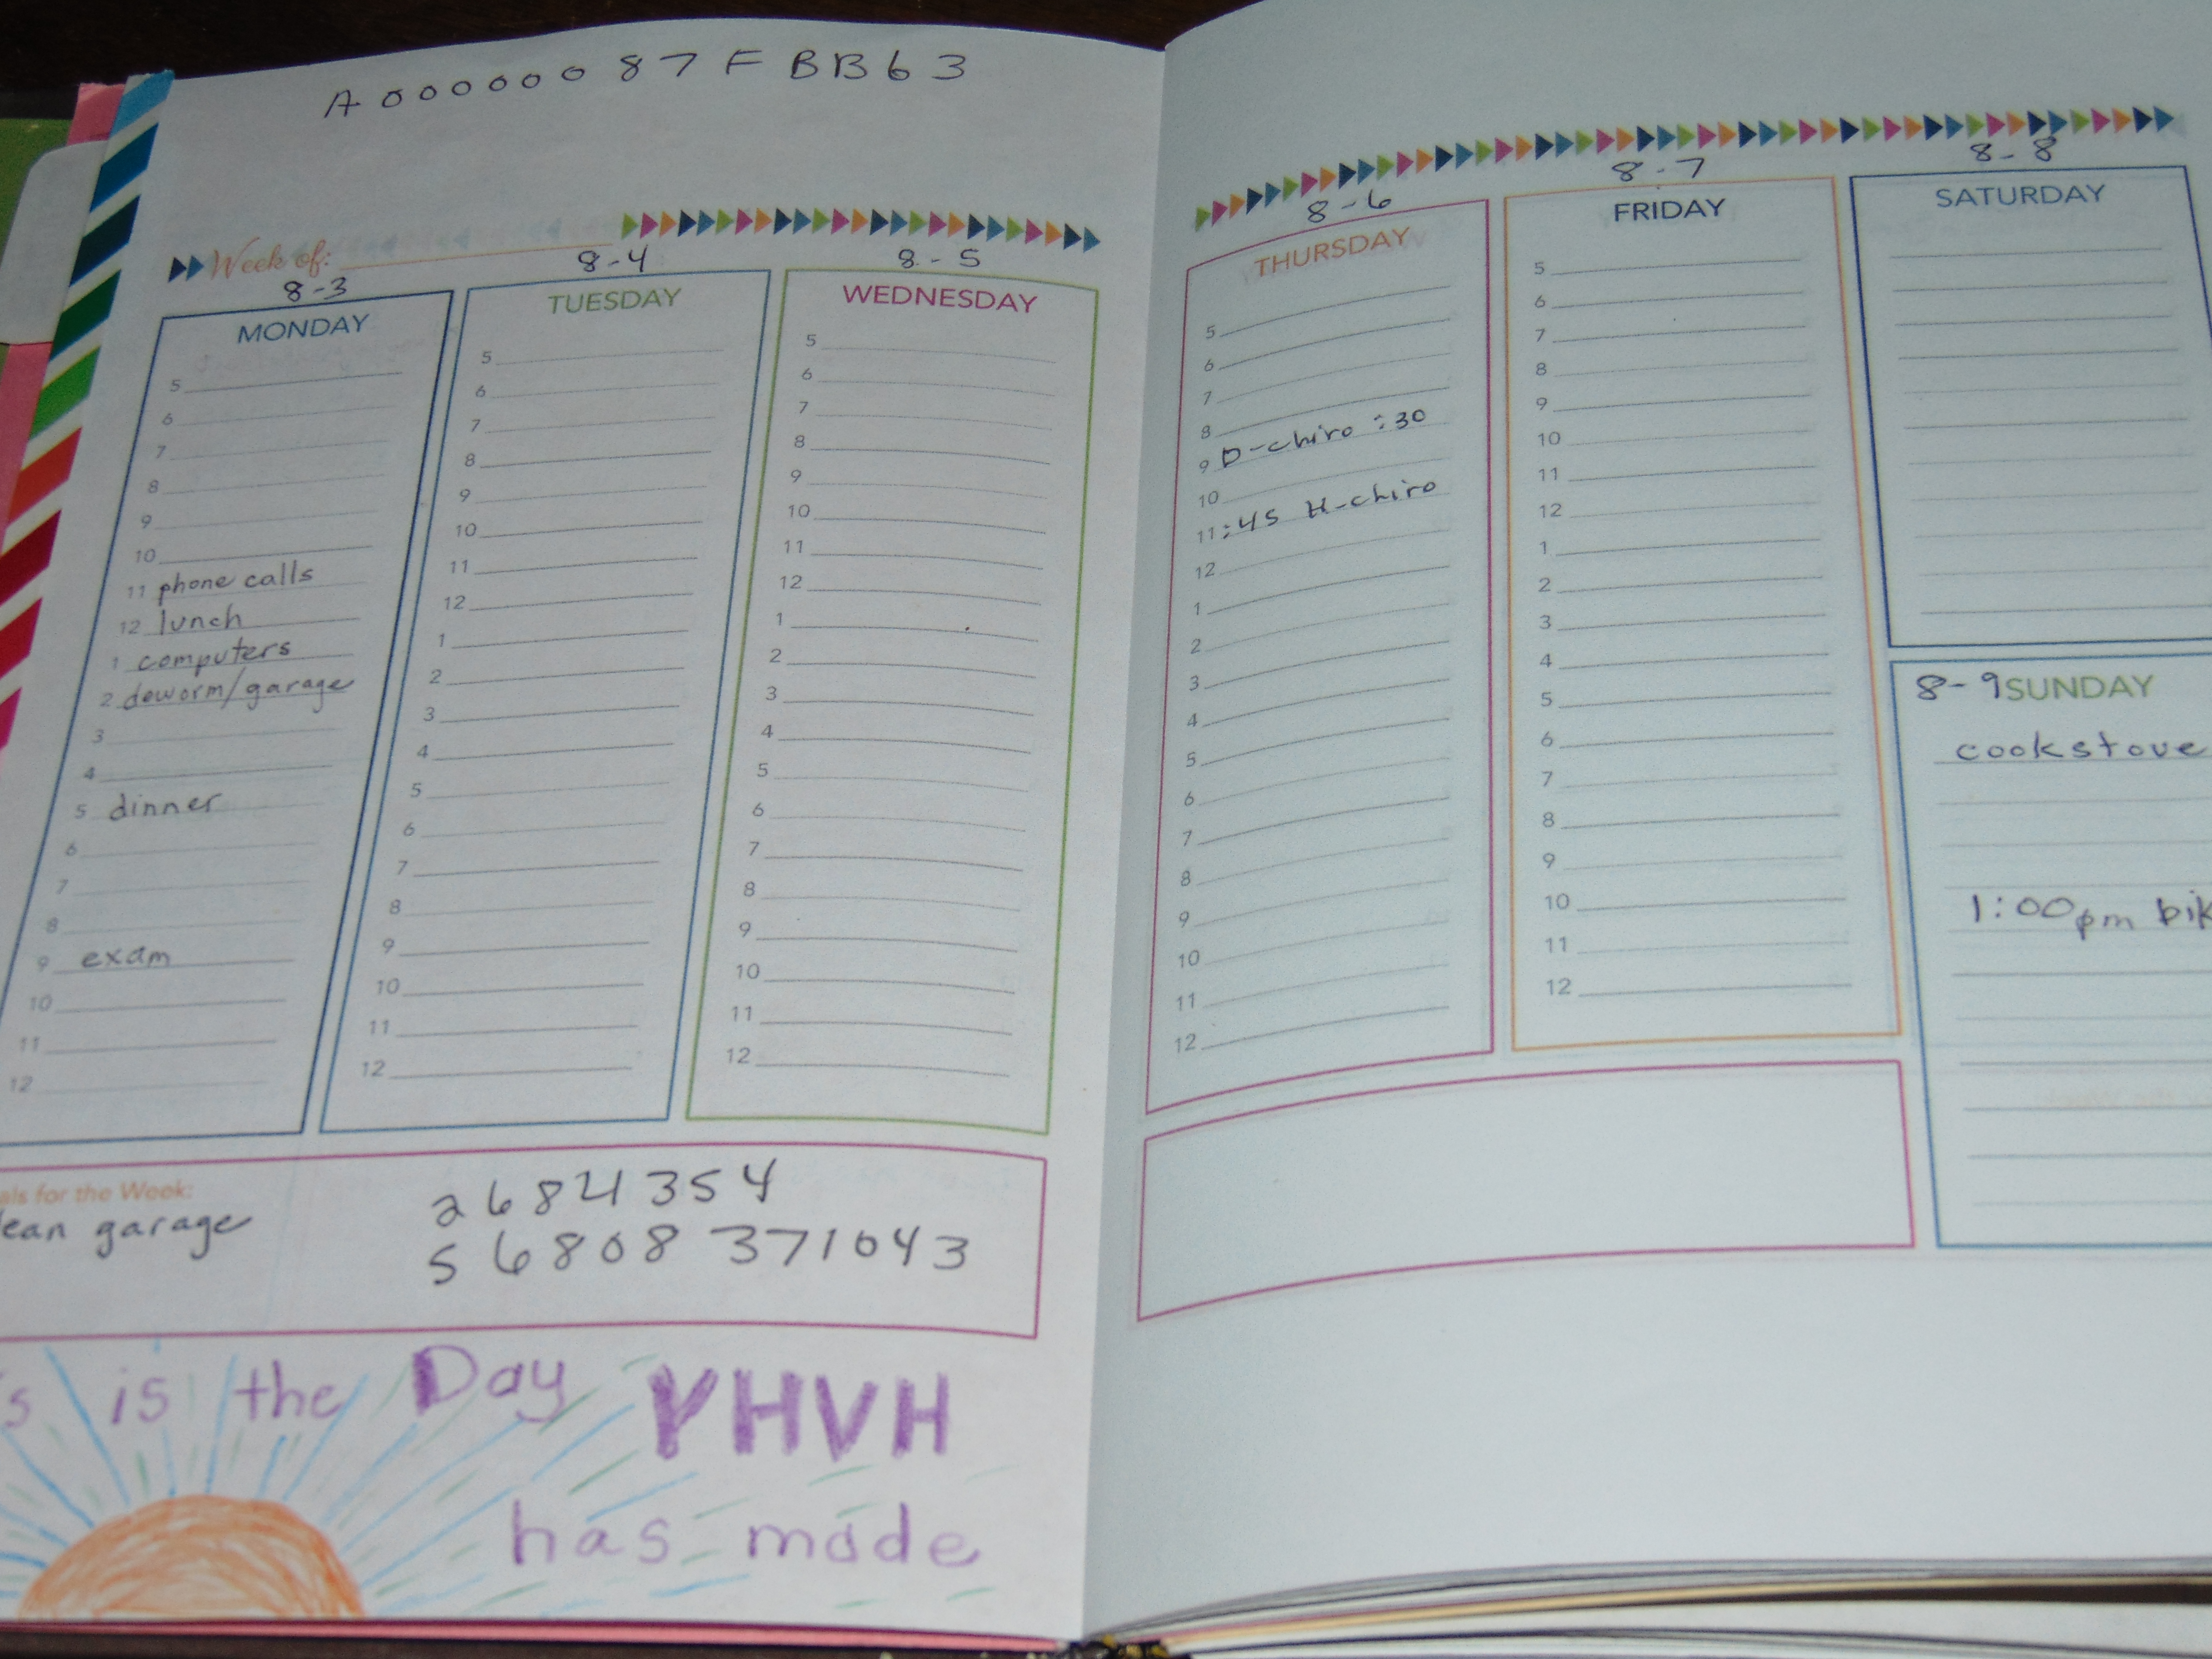 A00000087FBB63
Week of:
8-3
MONDAY
5
6
7
8
9
10
11 phone calls
12 lunch
1 computers
2 deworm/garage
3
4
5 dinner
6
7
8
9 exam
10
11
12
8-4
TUESDAY
5
6
7
8
9
10
11
12
1
2
3
4
5
6
7
8
9
10
11
12
8-5
WEDNESDAY
5
6
7
8
9
10
11
12
1
2
3
4
5
6
7
8
9
10
11
12
als for the Week:
lean garage
2684354
56808 371043
s is the Day YHVH
has made
8-6
THURSDAY
5
6
7
8
9 D-chiro :30
10
11 :45 H-chiro
12
1
2
3
4
5
6
7
8
9
10
11
12
8-7
FRIDAY
5
6
7
8
9
10
11
12
1
2
3
4
5
6
7
8
9
10
11
12
8-8
SATURDAY
8-9 SUNDAY
cookstove
1:00pm bik